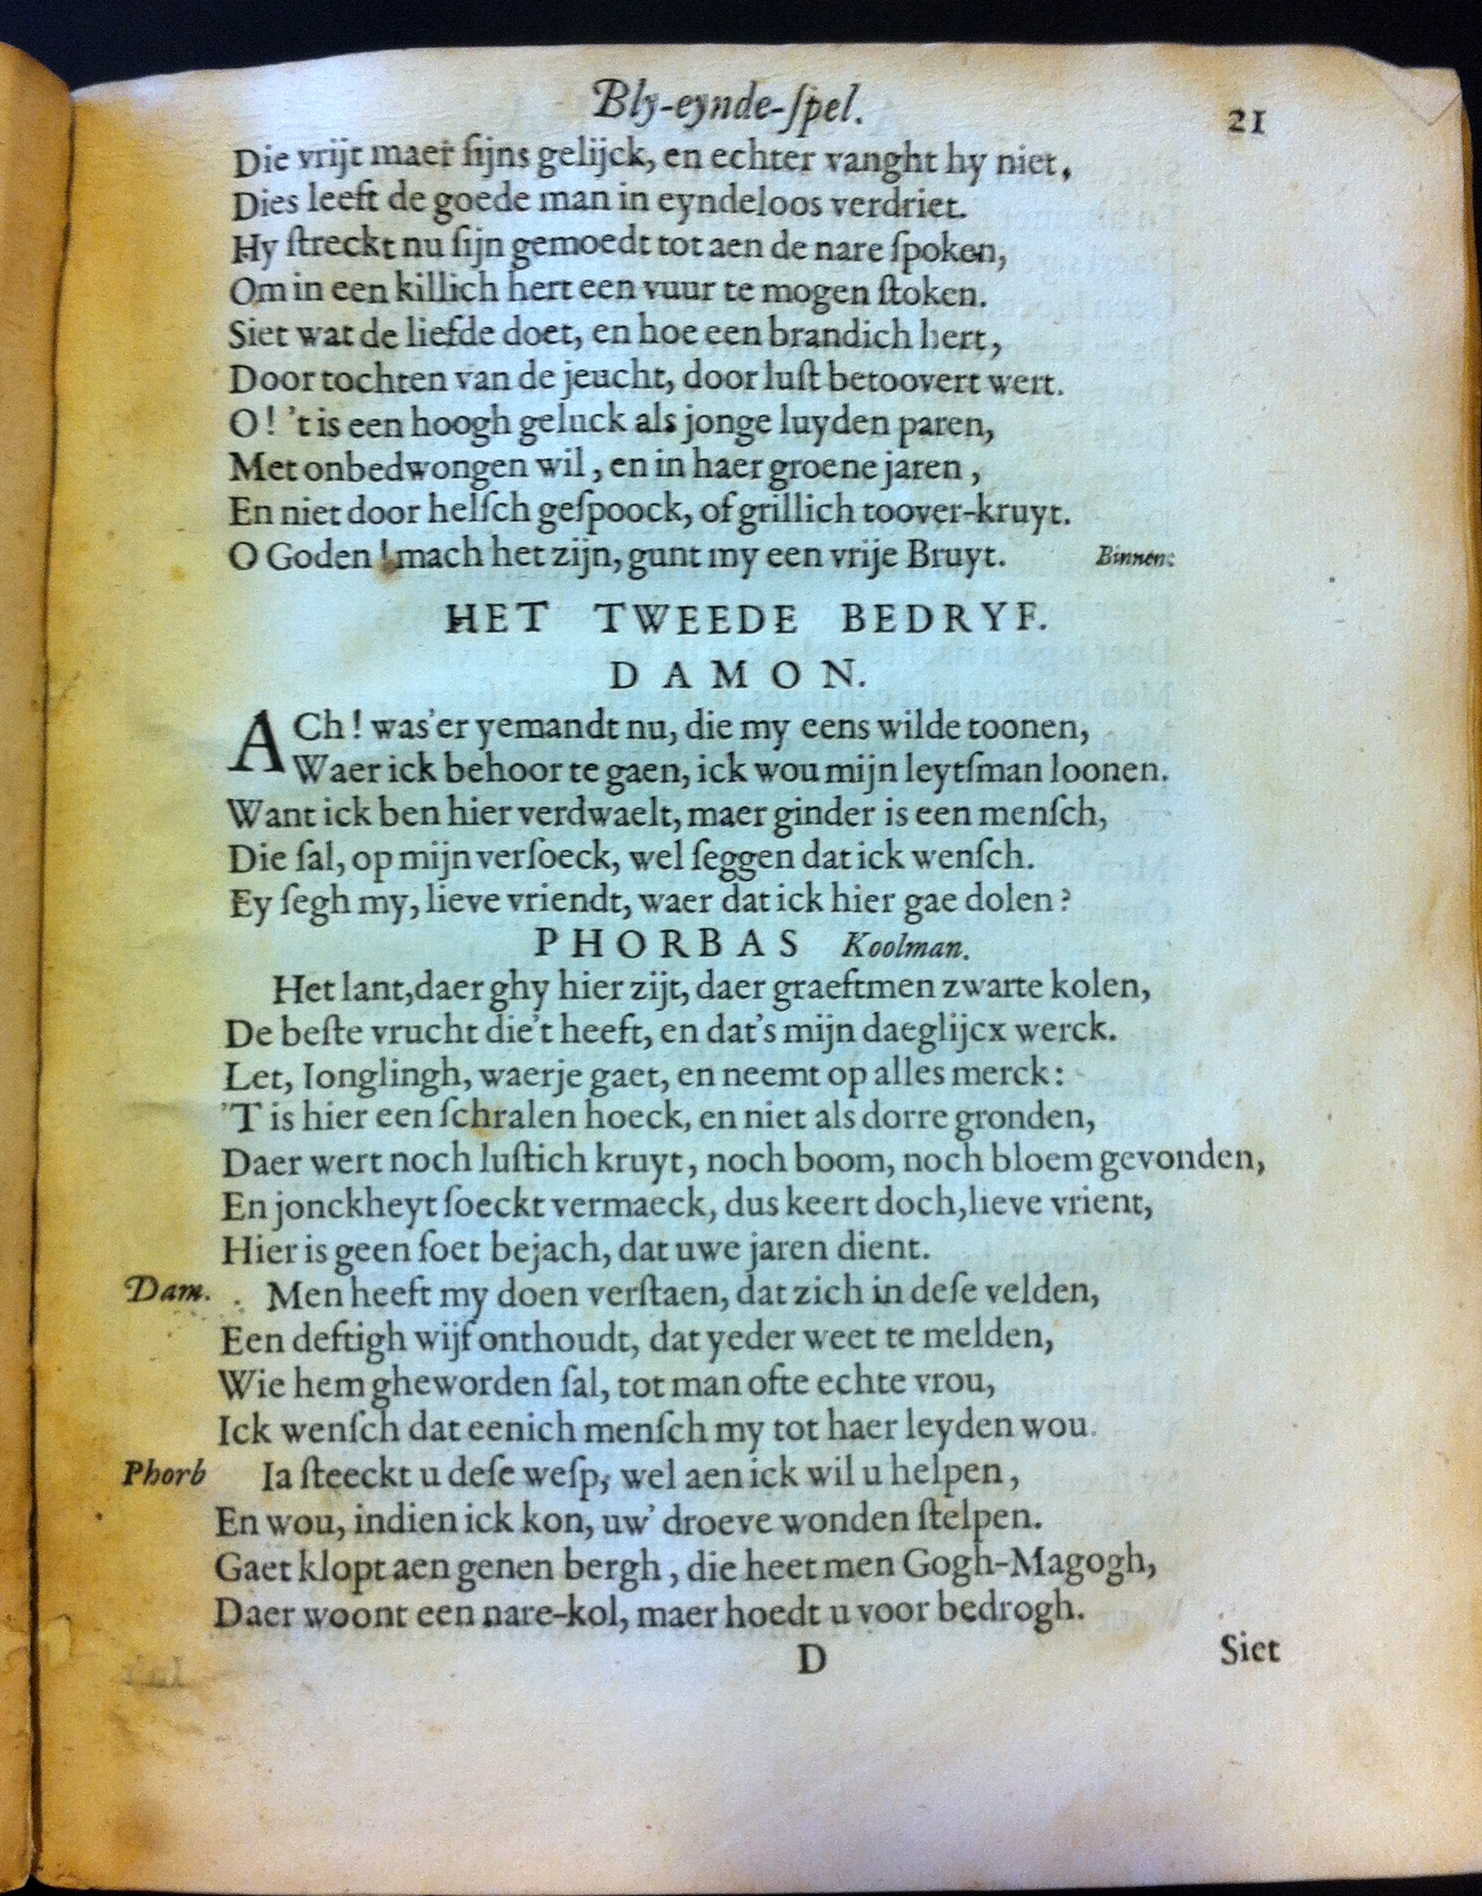 Bly-eynde-ſpel.
21
Die vrijt maer ſijns gelijck, en echter vanght hy niet,
Dies leeft de goede man in eyndeloos verdriet.
Hy ſtreckt nu ſijn gemoedt tot aen de nare ſpoken,
Om in een killich hert een vuur te mogen ſtoken.
Siet wat de liefde doet, en hoe een brandich hert,
Door tochten van de jeucht, door luſt betoovert wert.
O! 't is een hoogh geluck als jonge luyden paren,
Met onbedwongen wil, en in haer groene jaren,
En niet door helſch geſpoock, of grillich toover-kruyt.
O Goden! mach het zijn, gunt my een vrije Bruyt. Binnen:
HET TWEEDE BEDRYF.
DAMON.
ACh! was'er yemandt nu, die my eens wilde toonen,
Waer ick behoor te gaen, ick wou mijn leytſman loonen.
Want ick ben hier verdwaelt, maer ginder is een menſch,
Die ſal, op mijn verſoeck, wel ſeggen dat ick wenſch.
Ey ſegh my, lieve vriendt, waer dat ick hier gae dolen?
PHORBAS Koolman.
Het lant, daer ghy hier zijt, daer graeftmen zwarte kolen,
De beſte vrucht die't heeft, en dat's mijn daeglijcx werck.
Let, Ionglingh, waerje gaet, en neemt op alles merck:
'T is hier een ſchralen hoeck, en niet als dorre gronden,
Daer wert noch luſtich kruyt, noch boom, noch bloem gevonden,
En jonckheyt ſoeckt vermaeck, dus keert doch, lieve vrient,
Hier is geen ſoet bejach, dat uwe jaren dient.
Dam. Men heeft my doen verſtaen, dat zich in deſe velden,
Een deftigh wijf onthoudt, dat yeder weet te melden,
Wie hem gheworden ſal, tot man ofte echte vrou,
Ick wenſch dat eenich menſch my tot haer leyden wou.
Phorb Ia ſteeckt u deſe weſp, wel aen ick wil u helpen,
En wou, indien ick kon, uw' droeve wonden ſtelpen.
Gaet klopt aen genen bergh, die heet men Gogh-Magogh,
Daer woont een nare-kol, maer hoedt u voor bedrogh.
D
Siet